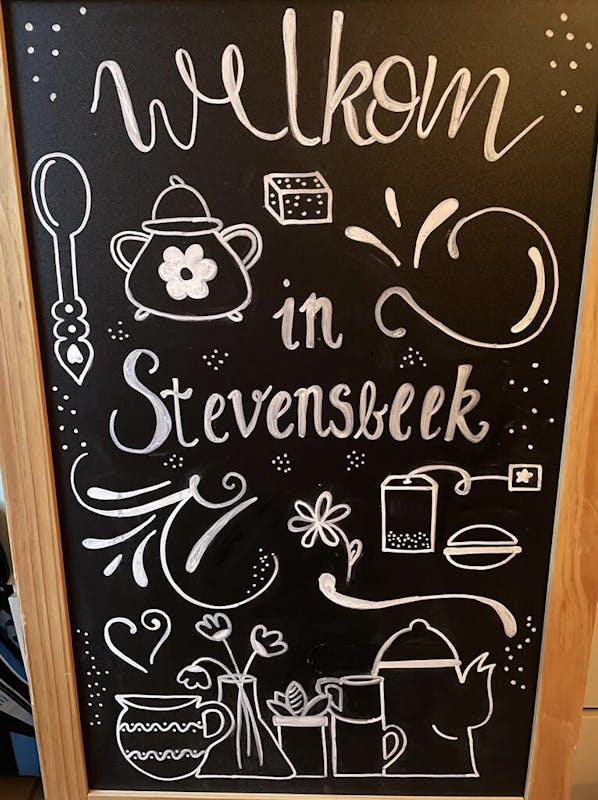 Welkom
in
Stevensbeek